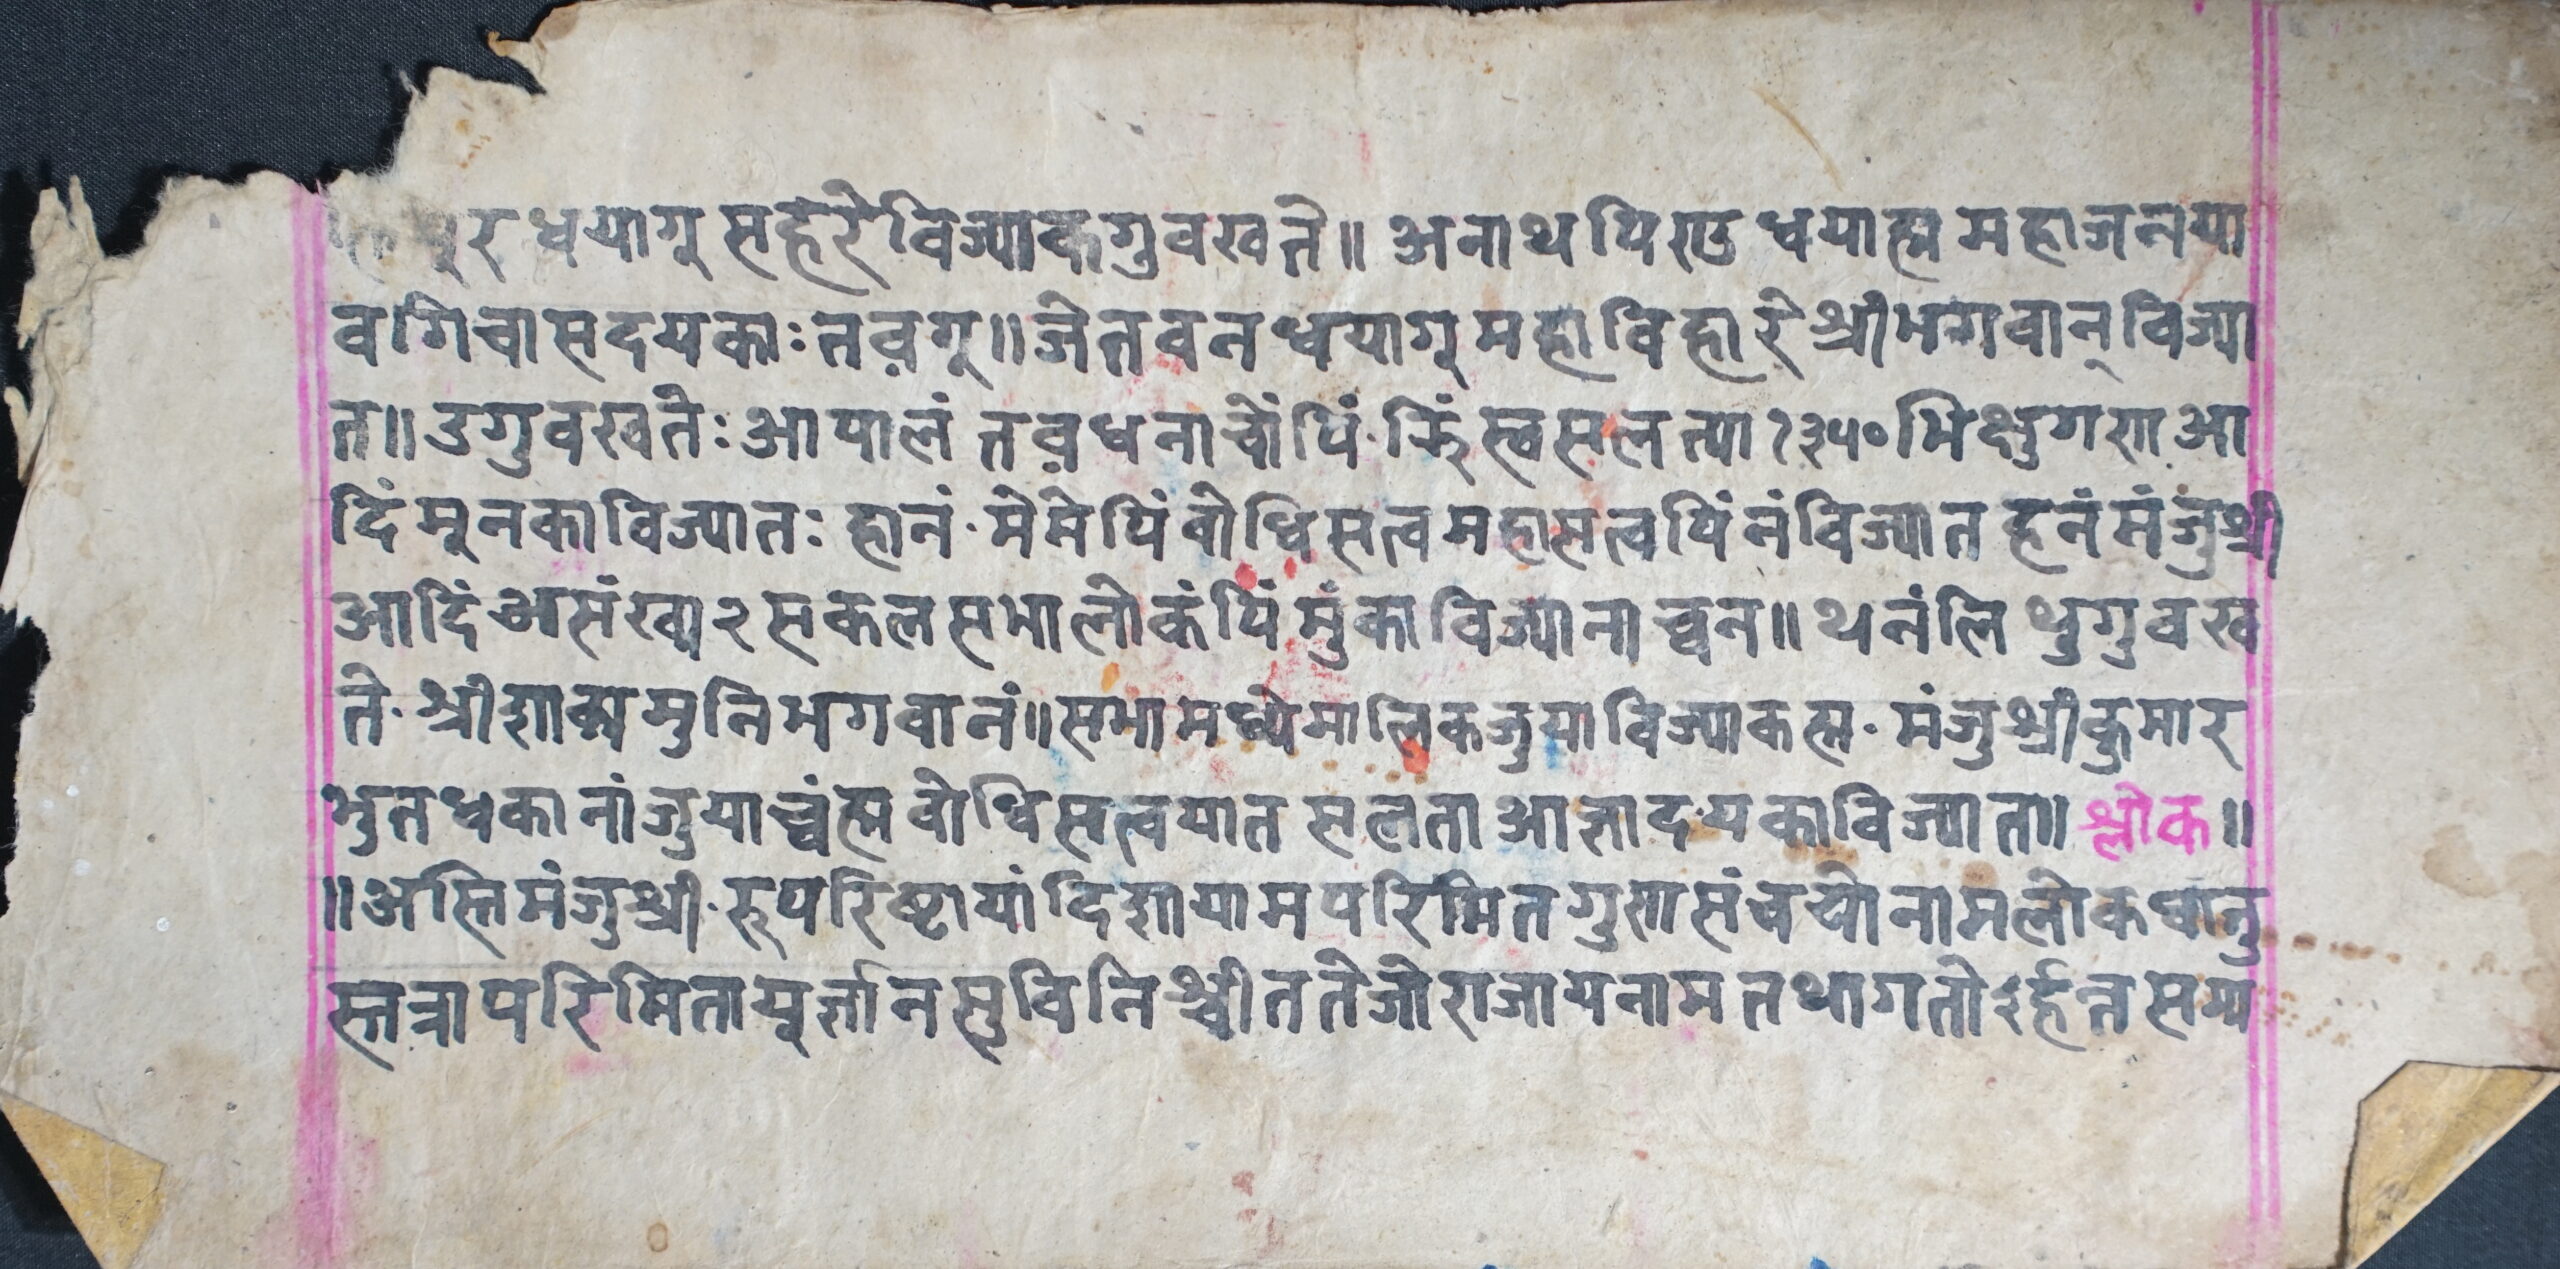 पुर धयागू सहरे विज्याकगुवखते॥ अनाथपिराउ धयाह्म महाजनया
वगिचासदयकाः तव़गू॥ जेतवन धयागू महाविहारे श्रीभगवान् विज्या
त॥ उगुवखतेः आपालं तव़धनाचोंपिं· झिंस्वसलत्या १३५० भिक्षुगण आ
दिं मूनकाविज्यातः हानं· मेमेपिं वोधिसत्व महासत्वपिंनं विज्यात हनं मंजुश्री
आदिं असंख्य २ सकल सभालोकंपिं मुंकाविज्यानाच्वन॥ थनंलि थुगुवख
ते· श्रीशाक्यमुनिभगवानं॥ सभामध्ये मालिकजुयाविज्याकह्म· मंजुश्रीकुमार
भुतधकानांजुयाच्वंह्म वोधिसत्वयात सलता आज्ञादयकाविज्याता॥ श्लोक॥
॥अस्ति मंजुश्री· रूपरिष्टायां दिशायामपरिमितगुणसंचयोनामलोकधातु
स्तत्रापरिमितायुर्ज्ञानसुविनिश्चीततेजोराजायनाम तथागतोऽर्हन्त सम्य